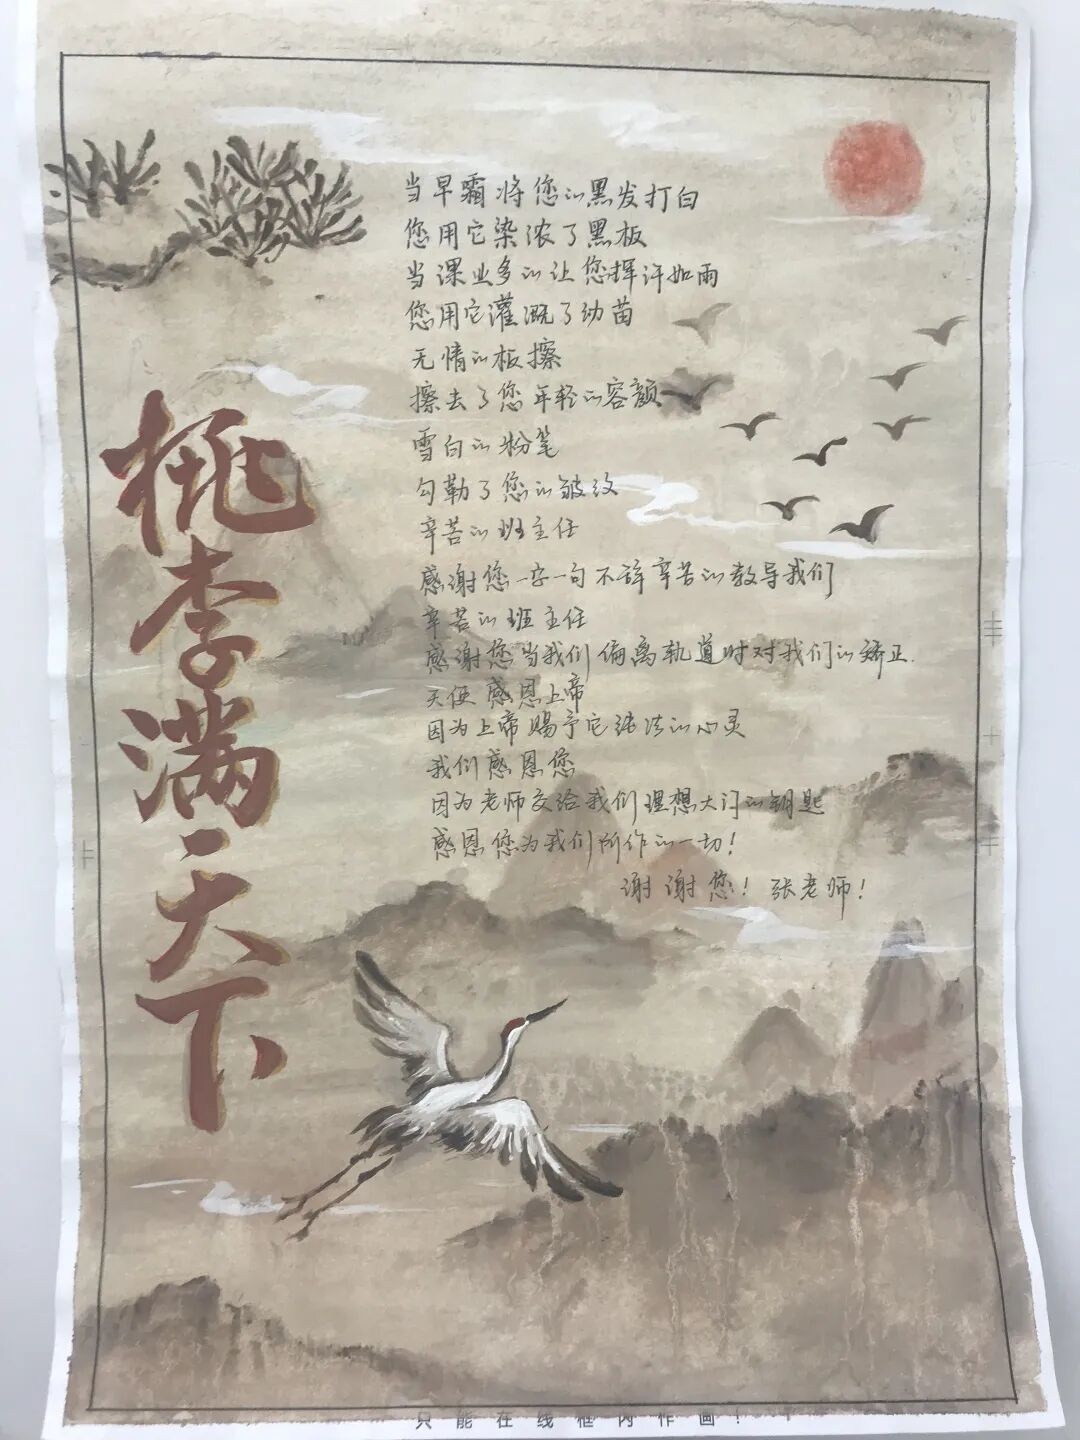 桃李满天下
当早霜将您的黑发打白
您用它染浓了黑板
当课业多的让您挥汗如雨
您用它灌溉了幼苗
无情的板擦
擦去了您年轻的容颜
雪白的粉笔
勾勒了您的皱纹
辛苦的班主任
感谢您一字一句不辞辛苦的教导我们
辛苦的班主任
感谢您当我们偏离轨道时对我们的矫正.
天使感恩上帝
因为上帝赐予它纯洁的心灵
我们感恩您
因为老师交给我们理想大门的钥匙
感恩您为我们所作的一切!
谢谢您!张老师!
只能在线框内作画!